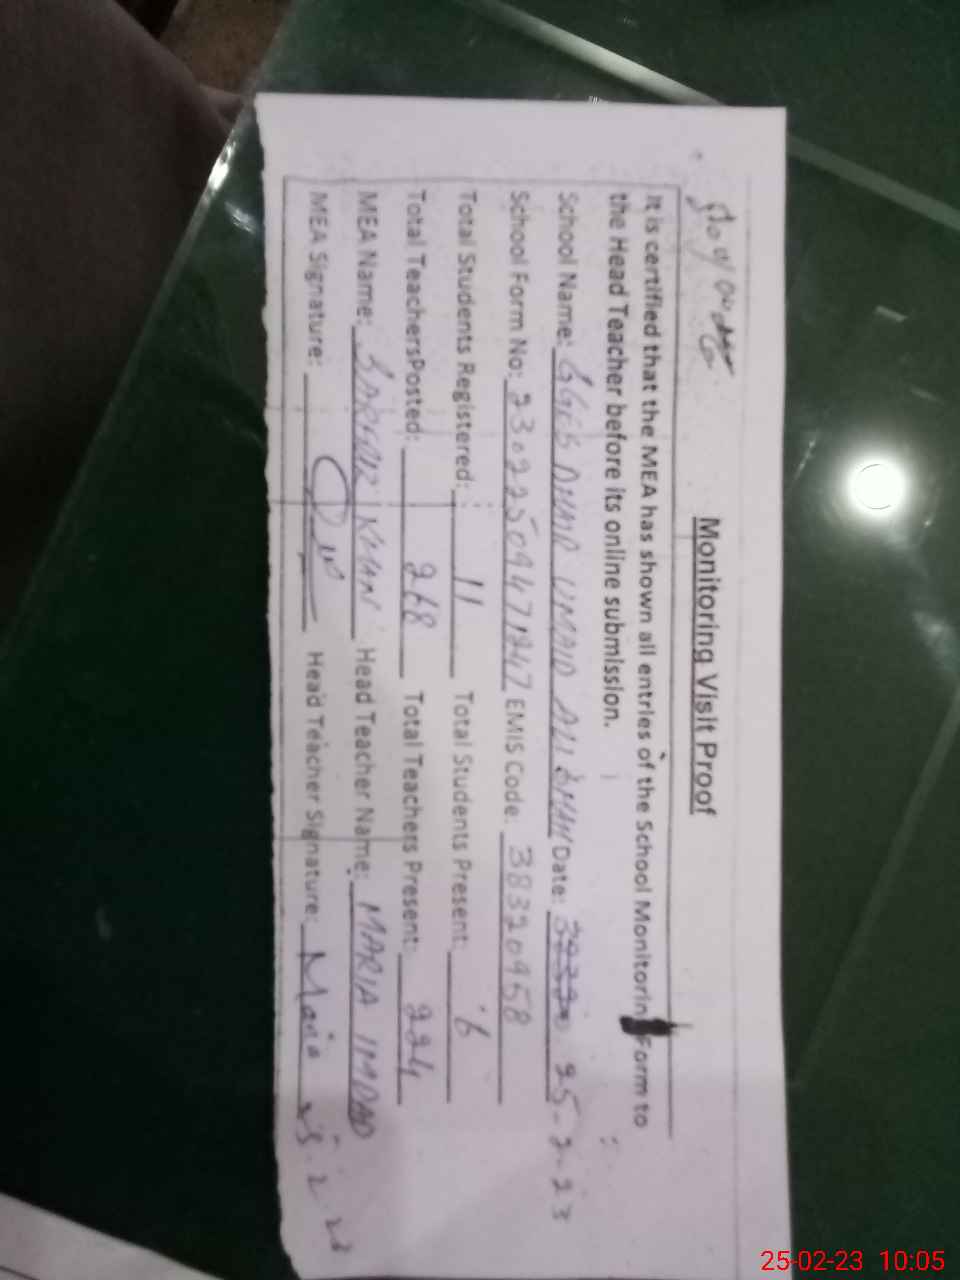 Monitoring Visit Proof
It is certified that the MEA has shown all entries of the School Monitorin Form to
the Head Teacher before its online submission.
School Name: GGES DHAID UMAID ALI SHAH Date: 25-2-23
School Form No: 23022509471247 EMIS Code: 38320958
Total Students Registered: 11 Total Students Present: 6
Total TeachersPosted: 268 Total Teachers Present: 224
MEA Name: SARFDR KHAN Head Teacher Name: MARIA IMDAD
MEA Signature: Head Teacher Signature: Maria 25.2.23
25-02-23 10:05